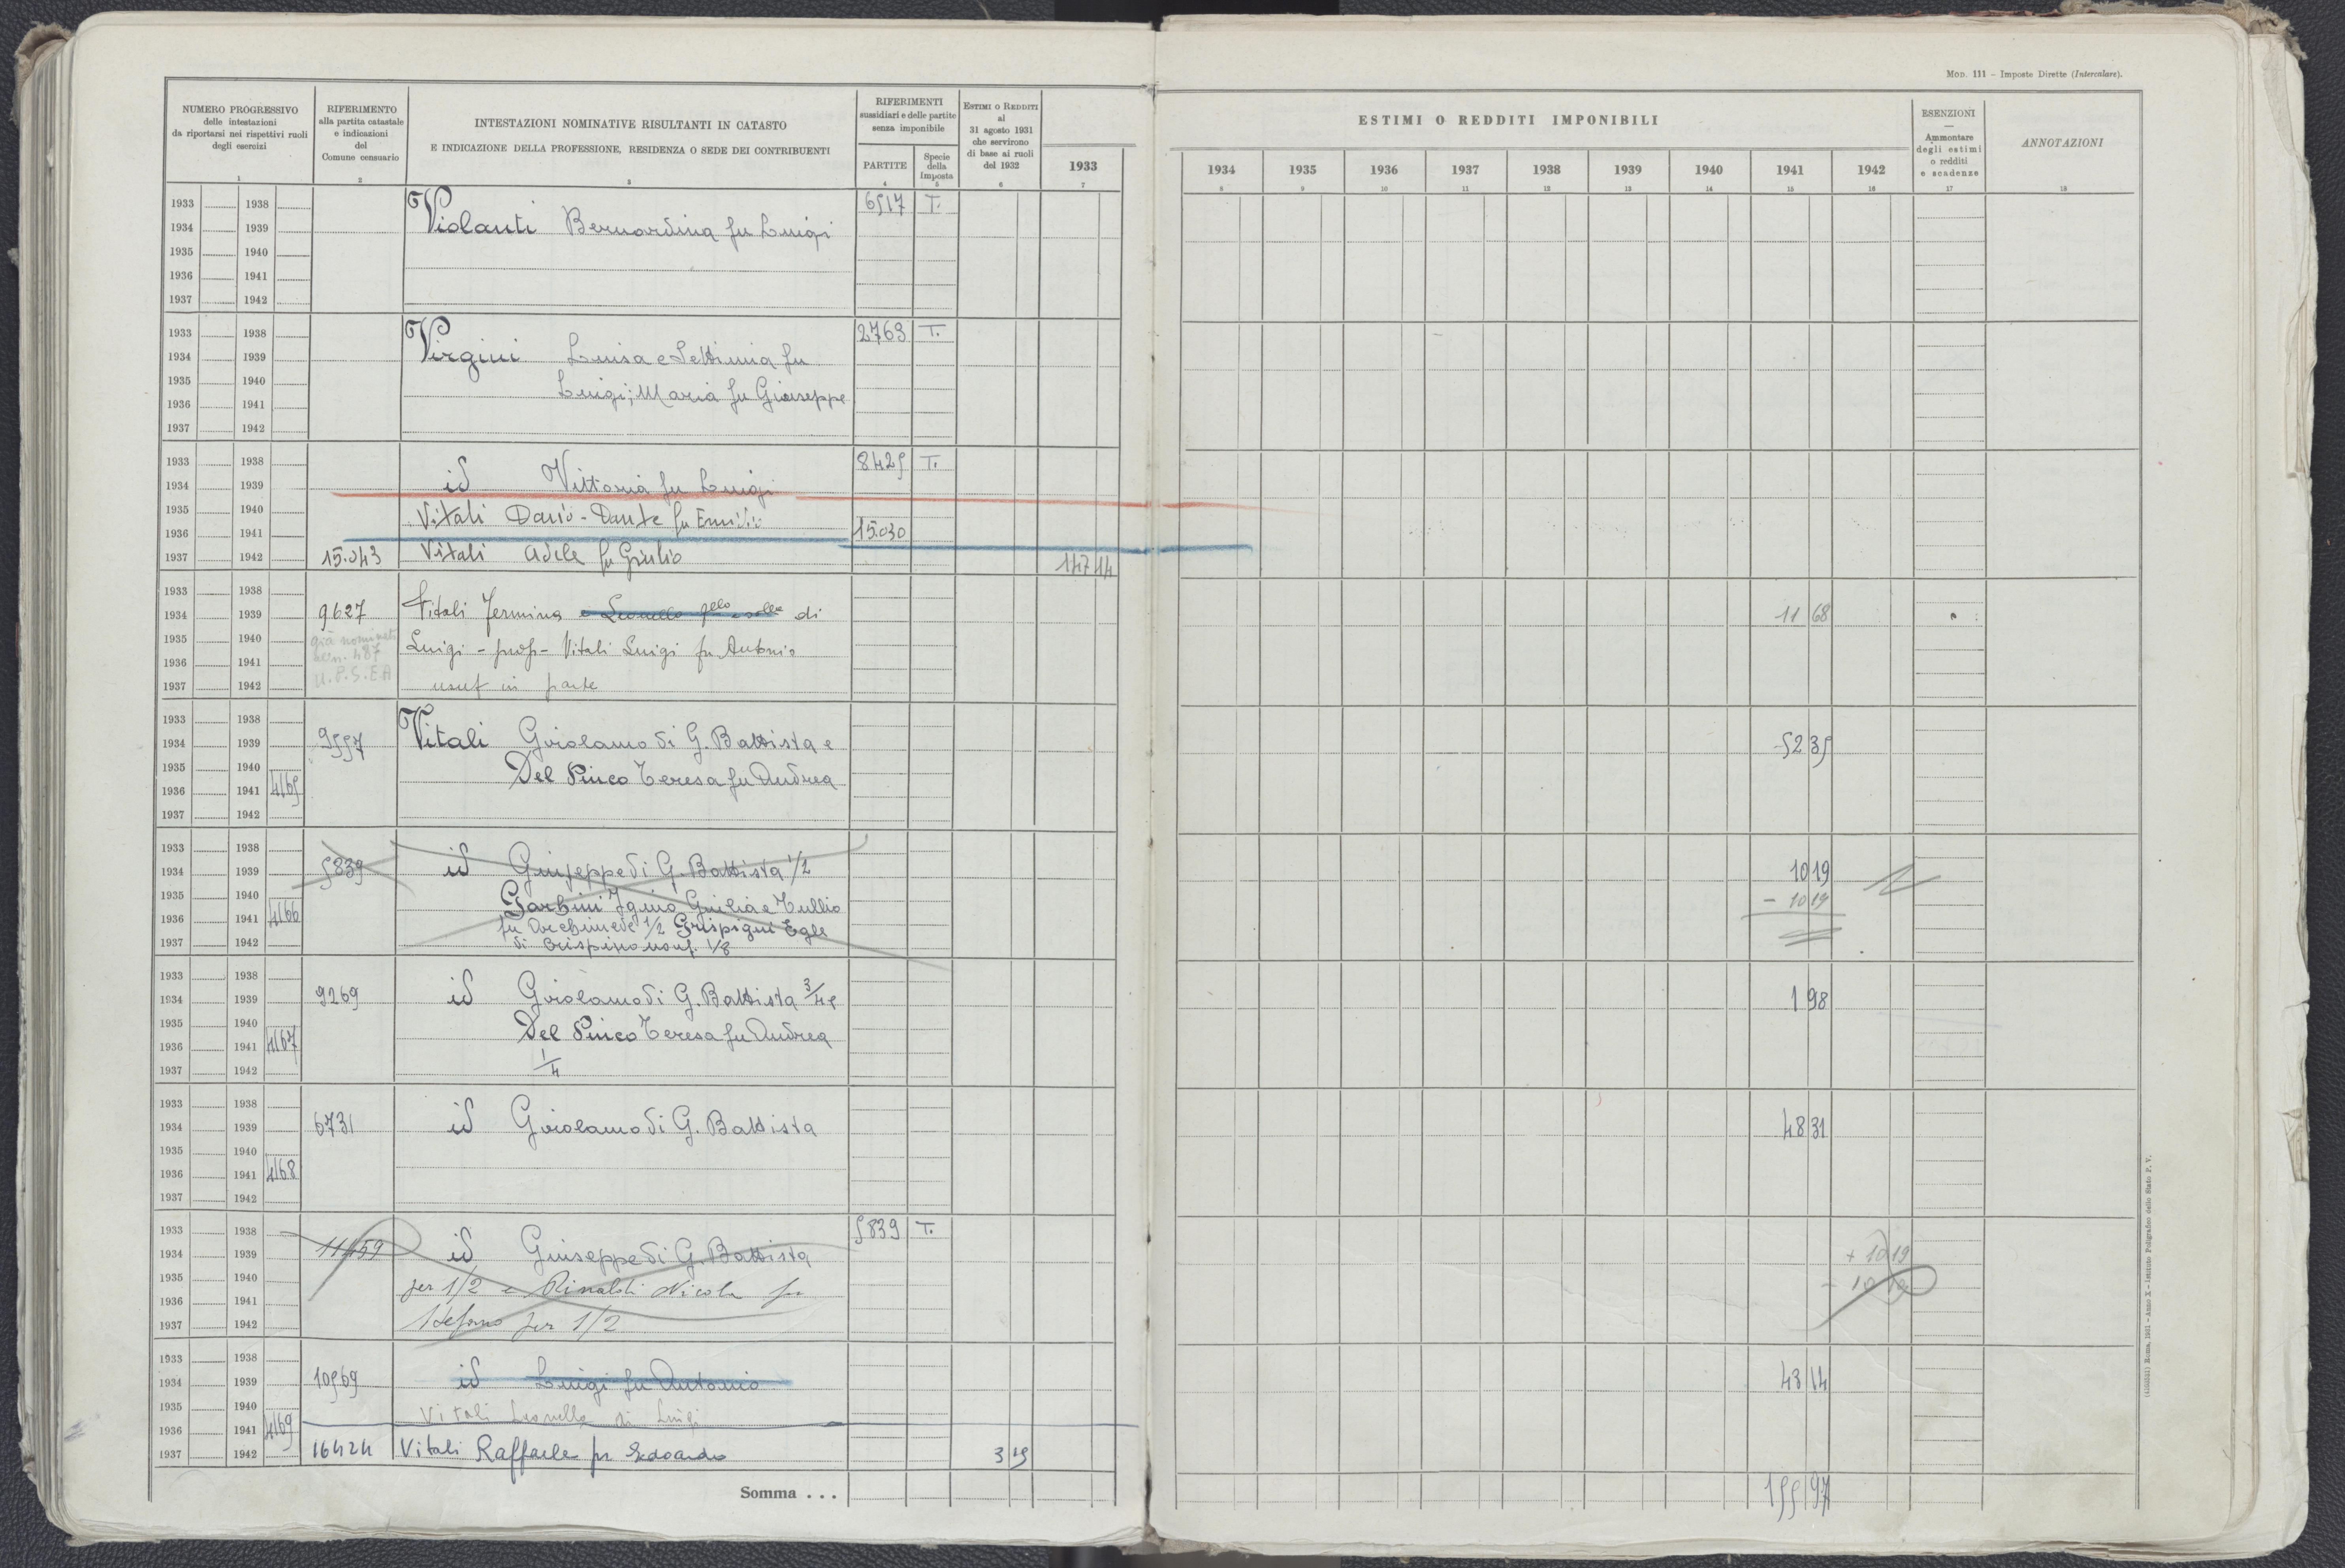 MOD. 111 – Imposte Dirette (Intercalare).
NUMERO PROGRESSIVO
delle intestazioni
da riportarsi nei rispettivi ruoli
degli esercizi
1
RIFERIMENTO
alla partita catastale
e indicazioni
del
Comune censuario
2
INTESTAZIONI NOMINATIVE RISULTANTI IN CATASTO
E INDICAZIONE DELLA PROFESSIONE, RESIDENZA O SEDE DEI CONTRIBUENTI
3
RIFERIMENTI
sussidiari e delle partite
senza imponibile
PARTITE
4
Specie
della
Imposta
5
ESTIMI O REDDITI
al
31 agosto 1931
che servirono
di base ai ruoli
del 1932
6
1933
7
ESTIMI O REDDITI IMPONIBILI
1934 1935 1936 1937 1938 1939 1940 1941 1942
8 9 10 11 12 13 14 15 16
ESENZIONI
—
Ammontare
degli estimi
o redditi
e scadenze
17
ANNOTAZIONI
18
1933 1938 6517 T.
1934 1939 Violanti Bernardina fu Luigi
1935 1940
1936 1941
1937 1942
1933 1938 2763 T.
1934 1939 Virgini Luisa e Settimia fu
1935 1940 Luigi; Maria fu Giuseppe
1936 1941
1937 1942
1933 1938 8425 T.
1934 1939 id Vittoria fu Luigi
1935 1940 Vitali Dario - Dante fu Emidio
1936 1941 15030
1937 1942 15.043 Vitali Adele fu Giulio 147 14
1933 1938
1934 1939 9627 Vitali Jermina e Leonello di 11 68
1935 1940 già nominati Luigi - prop - Vitali Luigi fu Antonio
1936 1941 487
1937 1942 U.P.S.E.A usuf in parte
1933 1938
1934 1939 9557 Vitali Girolamo di G. Battista e 52 35
1935 1940 Del Pinco Teresa fu Andrea
1936 1941 4165
1937 1942
1933 1938
1934 1939 5839 id Giuseppe di G. Battista 1/2 10 19
1935 1940 Garbini Igino Giulia e Tullio - 10 19
1936 1941 4166 fu Archimede 1/2 Grispigni Egle
1937 1942 di Crispino usuf. 1/8
1933 1938
1934 1939 9269 id Girolamo di G. Battista 3/4 e 1 98
1935 1940 Del Pinco Teresa fu Andrea
1936 1941 4167 1/4
1937 1942
1933 1938
1934 1939 6731 id Girolamo di G. Battista 48 31
1935 1940
1936 1941 4168
1937 1942
1933 1938 5839 T.
1934 1939 11459 id Giuseppe di G. Battista + 10 19
1935 1940 per 1/2 e Rinaldi Nicola fu - 10 19
1936 1941
1937 1942 Stefano per 1/2
1933 1938
1934 1939 10569 id Luigi fu Antonio 43 14
1935 1940 Vitali Leonello di Luigi
1936 1941 4169
1937 1942 16424 Vitali Raffaele fu Edoardo 3 15
Somma . . . 155 97
(4103581) Roma, 1931 – Anno X – Istituto Poligrafico dello Stato P. V.